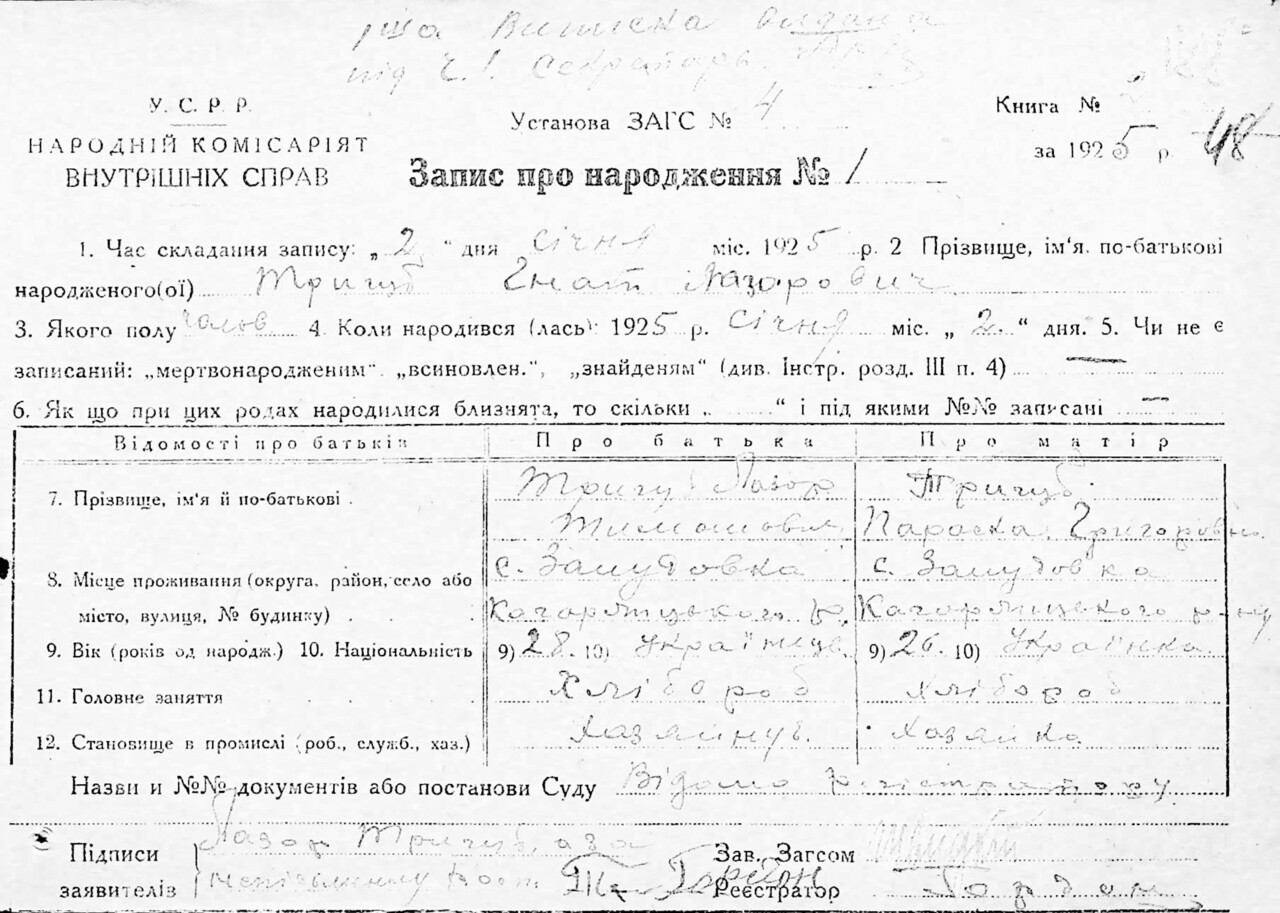 1ша Виписка видана
під Ч. 1. Секретарь
У. С. Р. Р.
НАРОДНІЙ КОМІСАРІЯТ
ВНУТРІШНІХ СПРАВ
Установа ЗАГС № 4
Книга №
за 1925 р. 48
Запис про народження № 1
1. Час складання запису: „2" дня січня міс. 1925 р. 2 Прізвище, ім'я. по-батькові
народженого(ої) Тригуб Гнат Лазорович
3. Якого полу чолов 4. Коли народився (лась): 1925 р. січня міс. „2." дня. 5. Чи не є
записаний: „мертвонародженим". „всиновлен.", „знайденям" (див. Інстр. розд. III п. 4) —
6. Як що при цих родах народилися близнята, то скільки „......" і під якими №№ записані —
Відомості про батьків Про батька Про матір
7. Прізвище, ім'я й по-батькові . Тригуб Лазор Тригуб
Тимошович Параска Григоровна
8. Місце проживання (округа, район, село або с. с.
місто, вулиця, № будинку) . . . Кагарлицького р. Кагарлицького р-ну
9. Вік (років од народж.) 10. Національність 9) 28. 10) Українець 9) 26. 10) Українка
11. Головне заняття . . . Хлібороб Хлібороб
12. Становище в промислі (роб., служб., хаз.) Хазяїнує Хазяйка
Назви и №№ документів або постанови Суду Відомо регістратору
Підписи Лазор Тригуб, а за Зав. Загсом
заявителів неписьменну Реєстратор Гордон